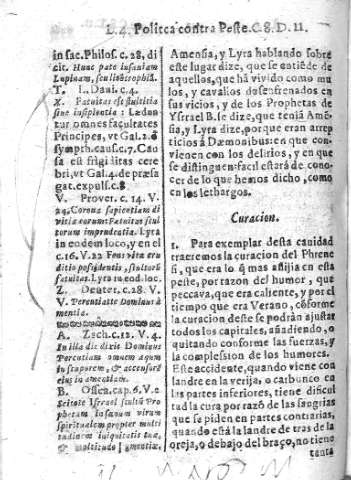 L.4. Politca contra Peste. C.8. D.11.
in sac. Philos. c. 28. di
cit. Hunc pato insaniam
Lupinam, seu litotrophiã.
T. L. Daui. c. 4.
X. Fatuitas est stultitia
sine insipientia: Lædun
tur omnes facultates
Principes, vt Gal. 2. 6
sympth. caus. c. 7. Cau
sa est frigiditas cere
bri, vt Gal. 4. de præsa
gat. expuls. c. 8
V. Prover. c. 14. V.
24. Corona sapientium di
vitia eorum: Fatuitas stul
torum imprudentia. Lyra
in eodem loco, y en el
c. 16. V. 22 Fons vitæ eru
ditio possidentis, stultorũ
fatuitas. Lyra in eod. loc.
Z. Deuter. c. 28. V.
V. Percutiat te Dominus à
mentia.
A. Zach. c. 12. V. 4.
In illa die dixit Dominus
Percutiam omnem equum
in stuporem, & accensorẽ
eius in amentiam.
B. Osseæ. cap. 6. V. 2
Scitote Israel stultũ Pro
phetam insanum virum
spiritualem propter multi
tudinem iniquitatis tuæ,
& multitudo amentiæ.
Amensia, y Lyra hablando sobre
este lugar dize, que se entiẽde de
aquellos, que hà vivido como mu
los, y cavallos desenfrenados en
sus vicios, y de los Prophetas de
Ysrael B. le dize, que teniã Amẽ
sia, y Lyra dize, porque eran arrep
ticios à Dæmonibus: en que con
vienen con los delirios, y en que
se distinguen: facil estarà de cono
cer de lo que hemos dicho, como
en los letbargos.
Curacion.
1. Para exemplar desta canidad
traeremos la curacion del Phrene
si, que era lo q̃ mas aflijia en esta
peste, por razon del humor, que
peccava, que era caliente, y por el
tiempo que era Verano, cõforme
la curacion deste se podràn ajustar
todos los capitales, añadiendo, o
quitando conforme las fuerzas, y
la complession de los humores.
Este accidente, quando viene con
landre en la verija, o carbunco en
las partes inferiores, tiene dificul
tad la cura por razõ de las sangrias
que se piden en partes contrarias,
quando està la landre de tras de la
oreja, o debajo del braço, no tiene
tanta